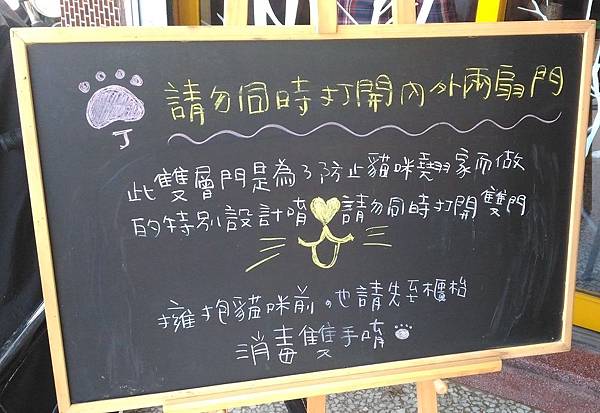 請勿同時打開內外兩扇門
此雙層門是為了防止貓咪翹家而做
的特別設計唷 請勿同時打開雙門
擁抱貓咪前。也請先至櫃枱
消毒雙手唷